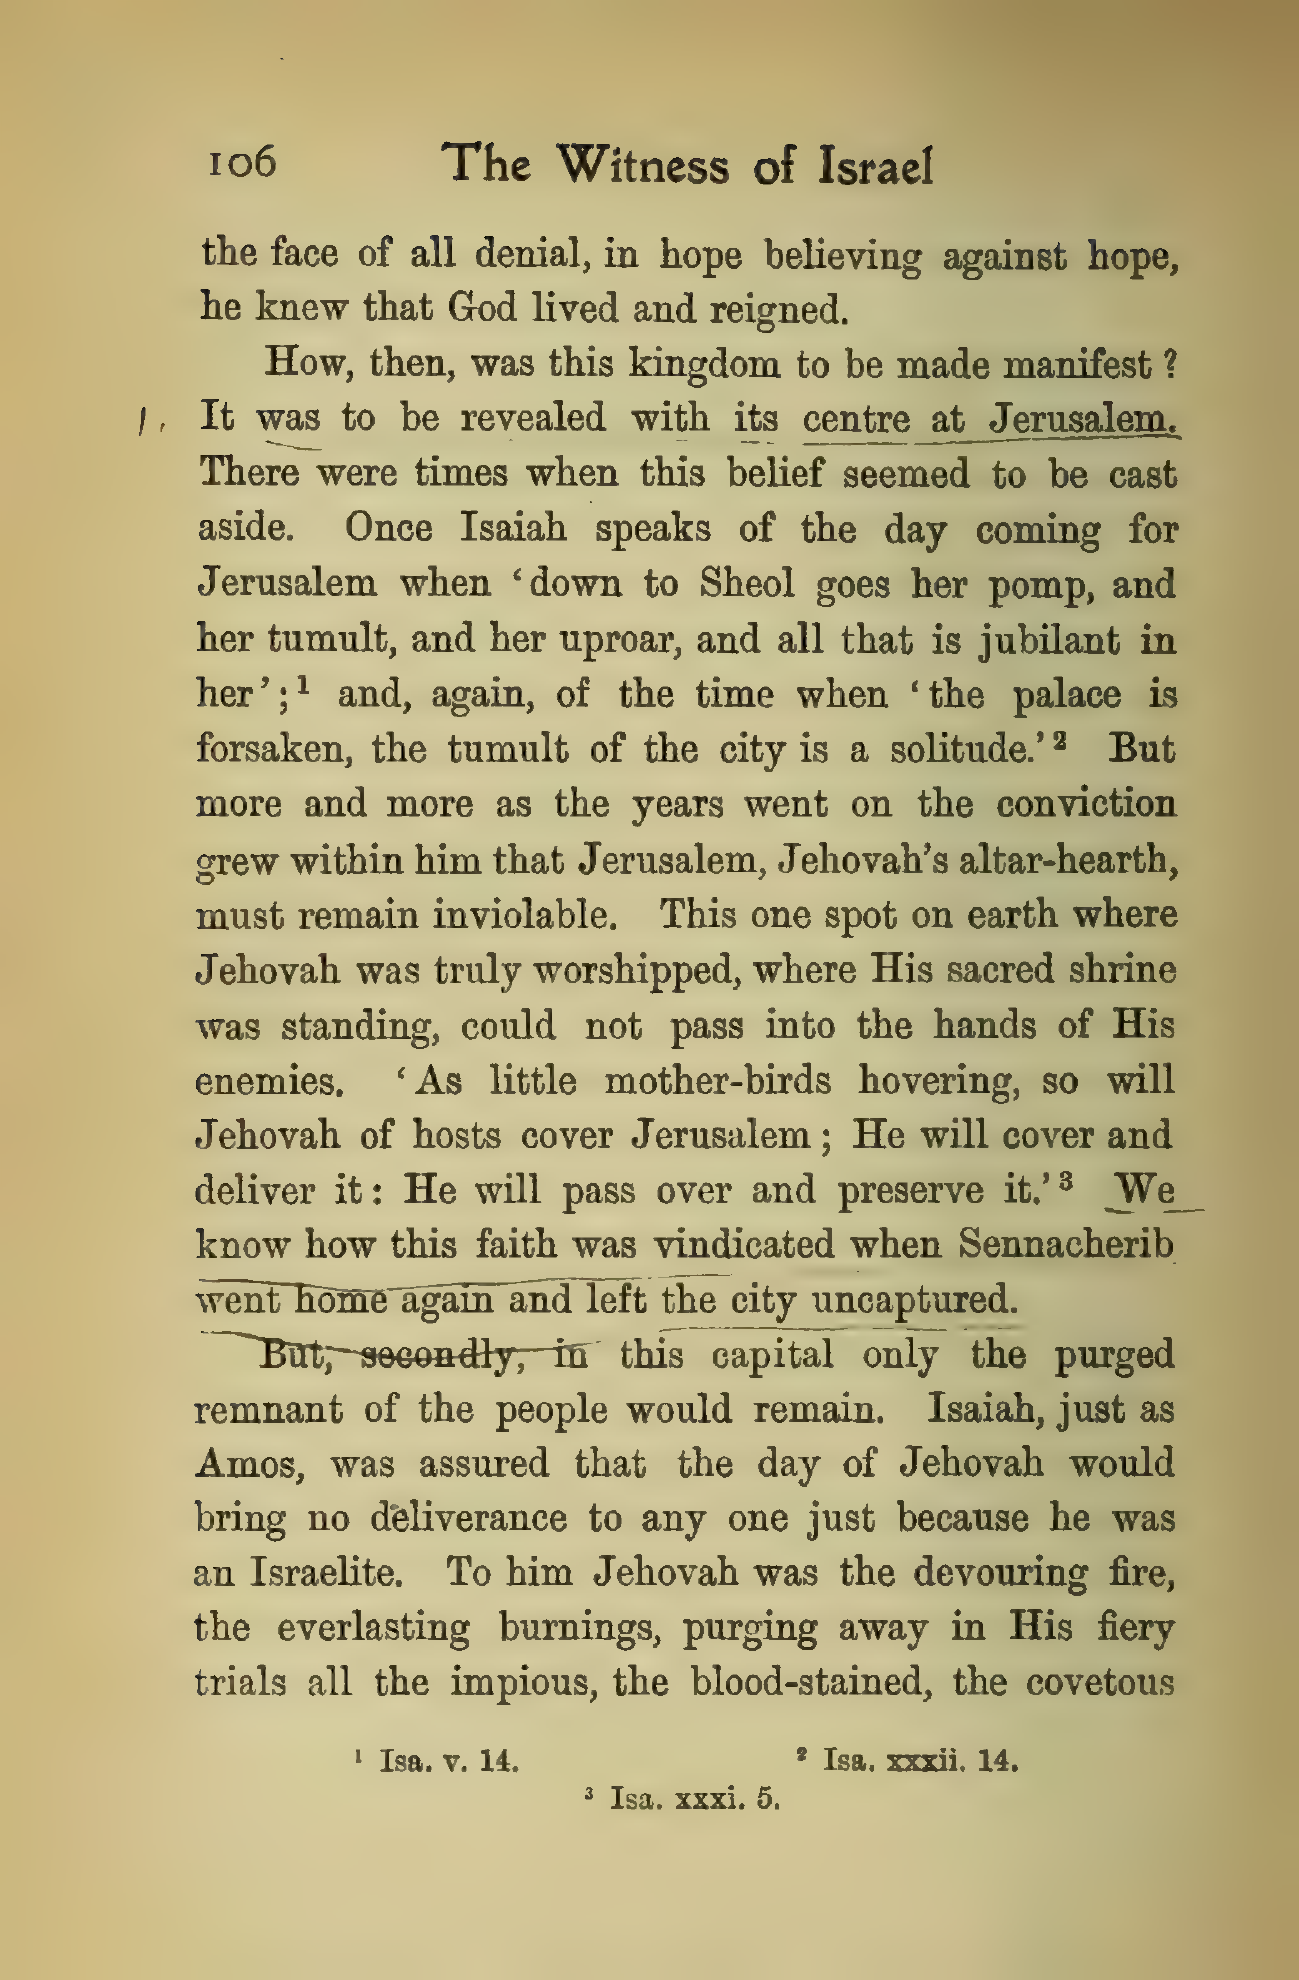 106 The Witness of Israel
the face of all denial, in hope believing against hope,
he knew that God lived and reigned.
How, then, was this kingdom to be made manifest ?
1. It was to be revealed with its centre at Jerusalem.
There were times when this belief seemed to be cast
aside. Once Isaiah speaks of the day coming for
Jerusalem when ‘ down to Sheol goes her pomp, and
her tumult, and her uproar, and all that is jubilant in
her ’ ;¹ and, again, of the time when ‘ the palace is
forsaken, the tumult of the city is a solitude.’² But
more and more as the years went on the conviction
grew within him that Jerusalem, Jehovah’s altar-hearth,
must remain inviolable. This one spot on earth where
Jehovah was truly worshipped, where His sacred shrine
was standing, could not pass into the hands of His
enemies. ‘ As little mother-birds hovering, so will
Jehovah of hosts cover Jerusalem ; He will cover and
deliver it : He will pass over and preserve it.’³ We
know how this faith was vindicated when Sennacherib
went home again and left the city uncaptured.
But, secondly, in this capital only the purged
remnant of the people would remain. Isaiah, just as
Amos, was assured that the day of Jehovah would
bring no deliverance to any one just because he was
an Israelite. To him Jehovah was the devouring fire,
the everlasting burnings, purging away in His fiery
trials all the impious, the blood-stained, the covetous
¹ Isa. v. 14. ² Isa. xxxii. 14.
³ Isa. xxxi. 5.